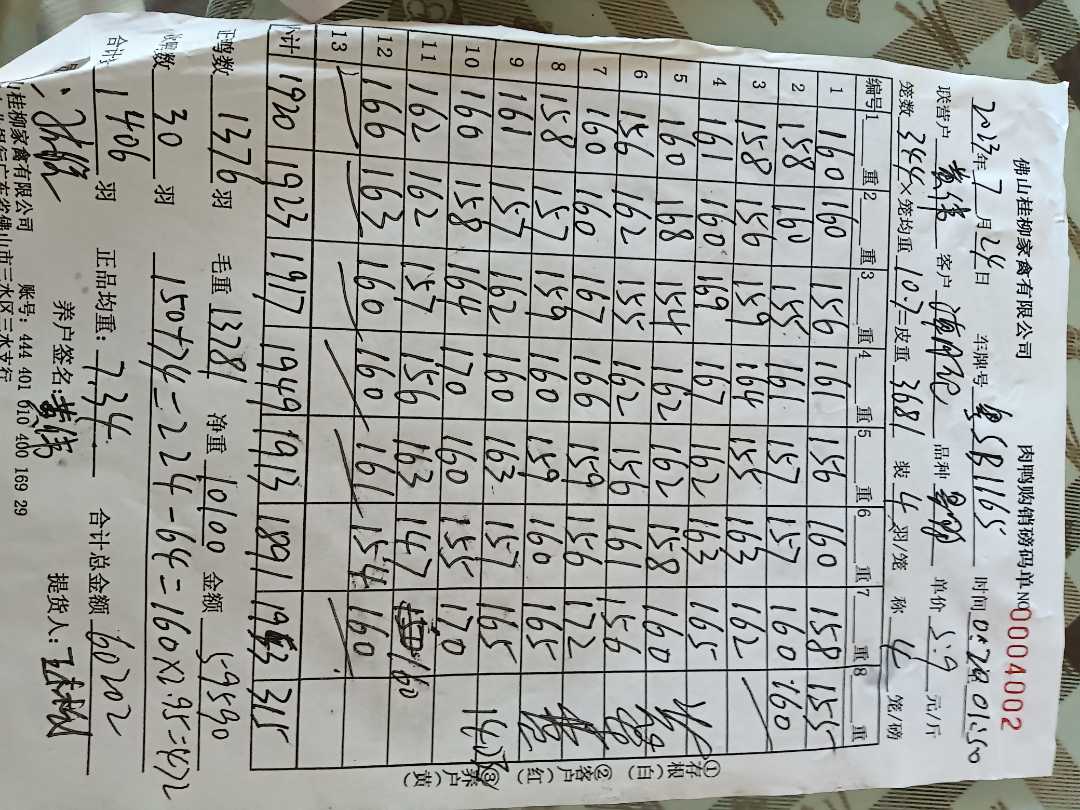 佛山桂柳家禽有限公司 肉鸭购销磅码单 NO 00004002
2023年7月24日 车牌号 粤SB1165 时间 0:20 01:50
联营户 黄伟 客户 品种 单价 5.9 元/斤
笼数 344×笼均重 10.7=皮重 3681 装 4 羽/笼 称 4 笼/磅
编号 1 重 2 重 3 重 4 重 5 重 6 重 7 重 8 重
1 160 160 156 161 156 160 158 155
2 158 160 155 161 157 157 160 160
3 158 156 159 164 155 163 162
4 161 160 169 167 162 163 165
5 160 168 154 162 162 158 160
6 156 162 155 162 156 161 156
7 160 160 167 166 159 156 172
8 158 157 159 160 159 160 165
9 161 157 162 160 163 157 165
10 160 158 164 170 160 155 170
11 162 162 157 156 163 147 160
12 166 163 160 160 161 154 160
13
小计 1920 1923 1917 1949 1913 1891 1953 315
正鸭数 1376 羽 毛重 13781 净重 10100 金额 59590
30 羽 150+74=224-64=160×3.95=632
合计 1406 羽 正品均重: 7.34 合计总金额 60202
养户签名: 黄伟 提货人:
桂柳家禽有限公司 账号: 444 401 010 400 169 29
佛山市三水区三水支行
①存根(白) ②客户(红) ③养户(黄)